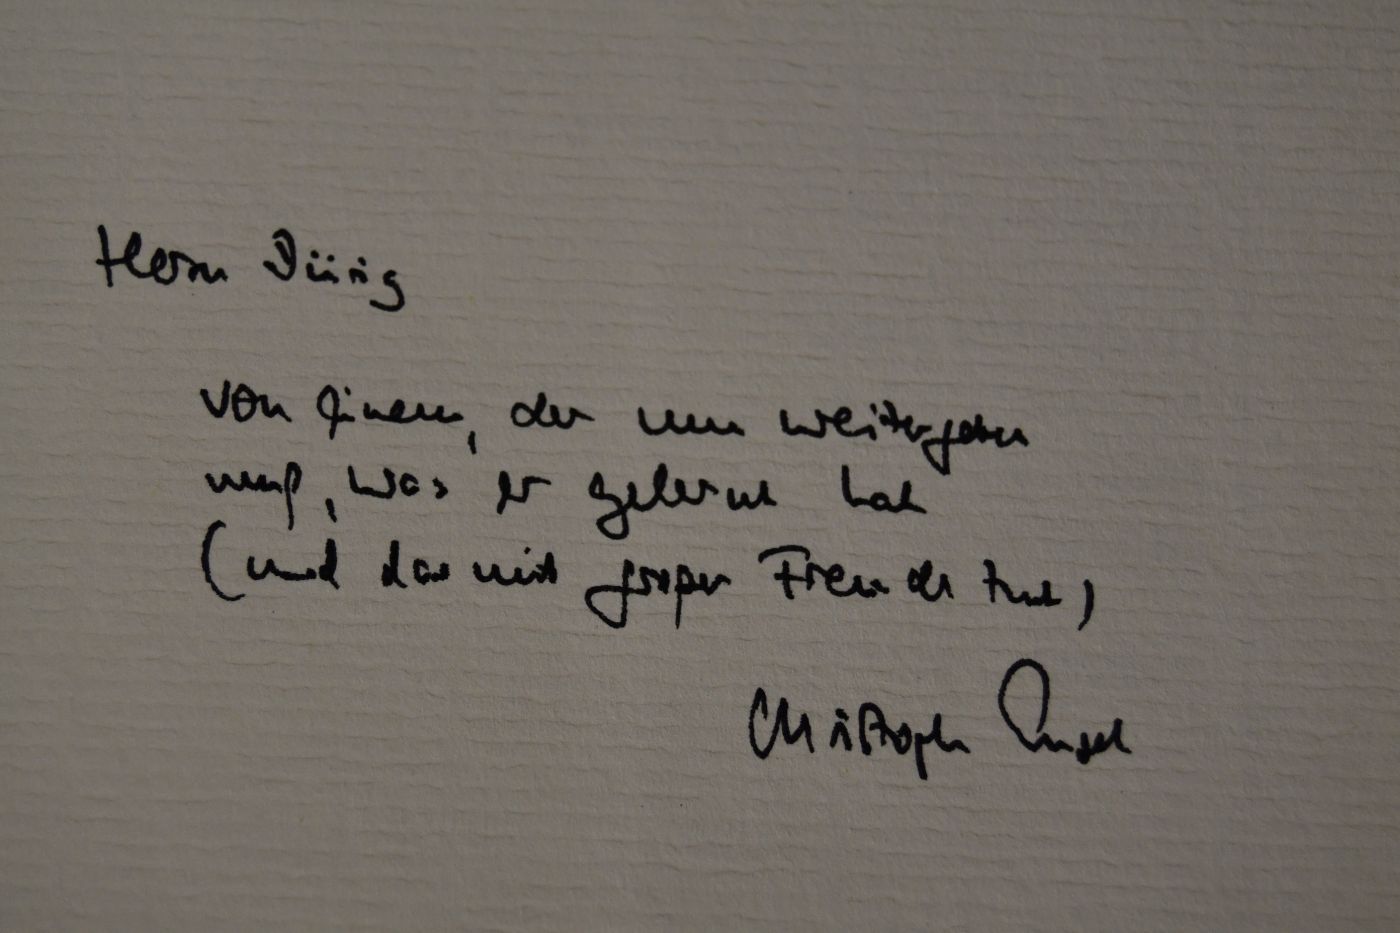 Herrn Dürig
von Einem, der nun weitergeben
muß, was er gelernt hat
(und das mit großer Freude tut)
Christoph Engel